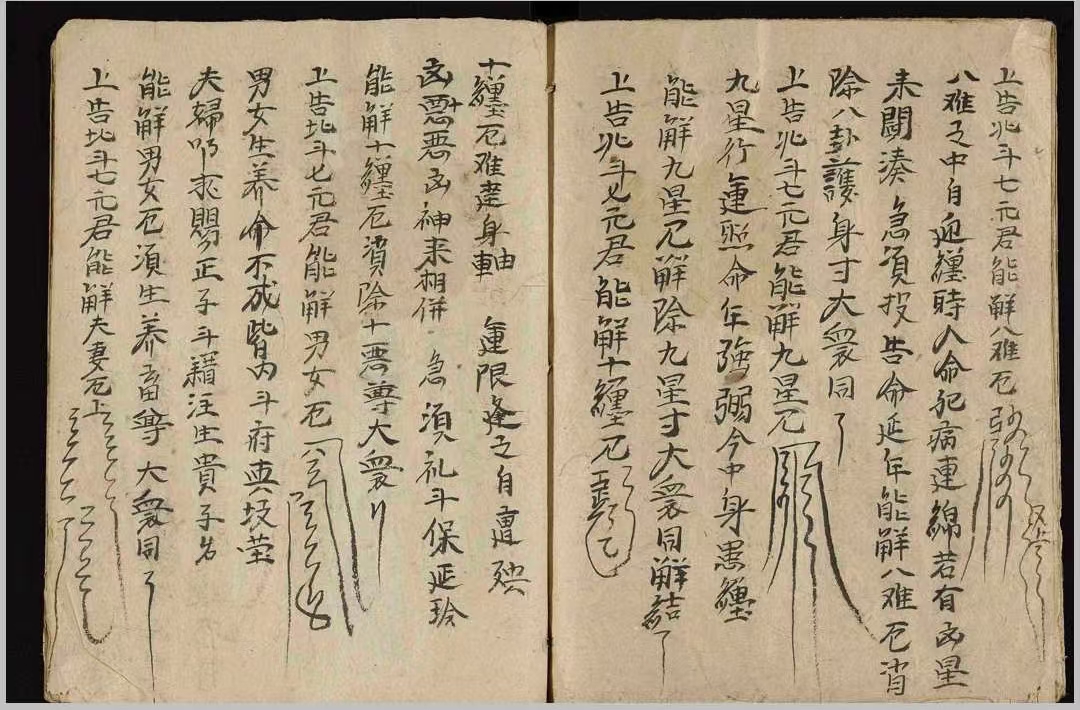 上告北斗七元君能解八难厄
八难之中自迎纏時人命犯病連綿若有凶星
来鬪湊急須投告命延年能解八难厄消
除八卦護身寸大衆同了
上告北斗七元君能解九星厄
九星行運照命年強弱今中身患纏
能解九星厄解除九星寸大衆同解結了
上告北斗七元君能解十纏厄
十纏厄难建身軸 運限逢之自遭殃
凶惡惡凶神来相併 急須礼斗保延玲
能解十纏厄消除十悪尊大衆
上告北斗七元君能解男女厄
男女生养命不成皆内斗府典坟茔
夫婦叩求賜正子斗籍注生貴子名
能解男女厄須生养畜尊大衆同了
上告北斗七元君能解夫妻厄